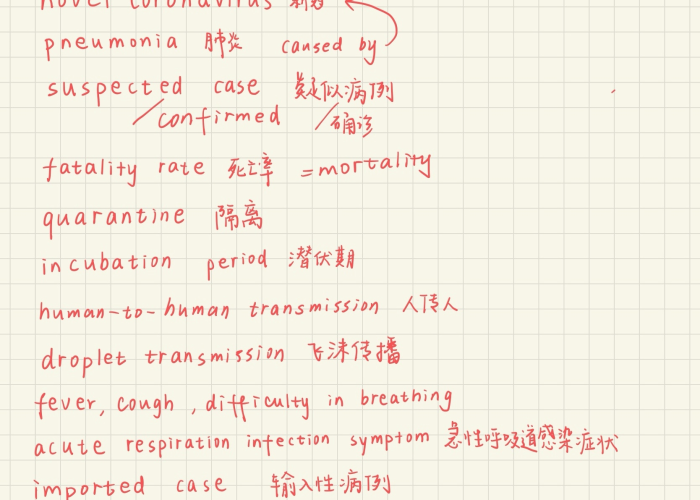 novel coronavirus 新冠
pneumonia 肺炎 caused by
suspected case 疑似病例
/confirmed /确诊
fatality rate 死亡率 =mortality
quarantine 隔离
incubation period 潜伏期
human-to-human transmission 人传人
droplet transmission 飞沫传播
fever, cough, difficulty in breathing
acute respiration infection symptom 急性呼吸道感染症状
imported case 输入性病例